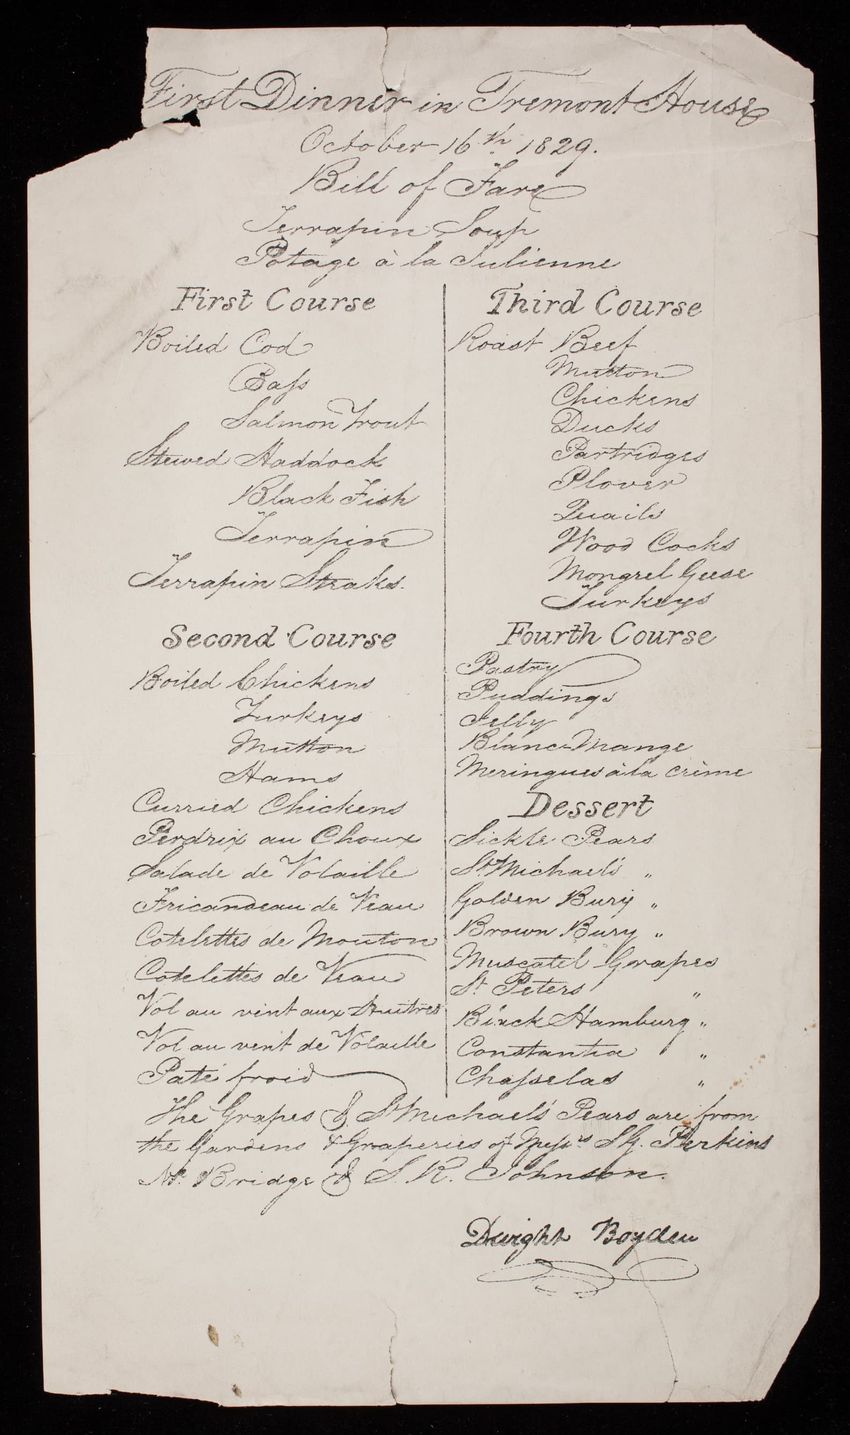 First Dinner in Tremont House
October 16th 1829.
Bill of Fare
Terrapin Soup
Potage à la Julienne
First Course
Boiled Cod
Bass
Salmon Trout
Stewed Haddock
Black Fish
Terrapin
Terrapin Steaks.
Second Course
Boiled Chickens
Turkeys
Mutton
Hams
Curried Chickens
Perdrix au Choux
Salade de Volaille
Fricandeau de Veau
Cotelettes de Mouton
Cotelettes de Veau
Vol au vent aux Huitres
Vol au vent de Volaille
Paté froid
Third Course
Roast Beef
Mutton
Chickens
Ducks
Partridges
Plover
Quails
Wood Cocks
Mongrel Geese
Turkeys
Fourth Course
Pastry
Puddings
Jelly
Blanc-Mange
Meringues à la crème
Dessert
Sickle Pears
St Michael's "
Golden Bury "
Brown Bury "
Muscatel Grapes
St. Peters "
Black Hamburg "
Constantia "
Chasselas "
The Grapes & St Michael's Pears are from
the Gardens & Graperies of Messrs S.G. Perkins
Mr. Bridge & S. R. Johnson.
Dwight Boyden